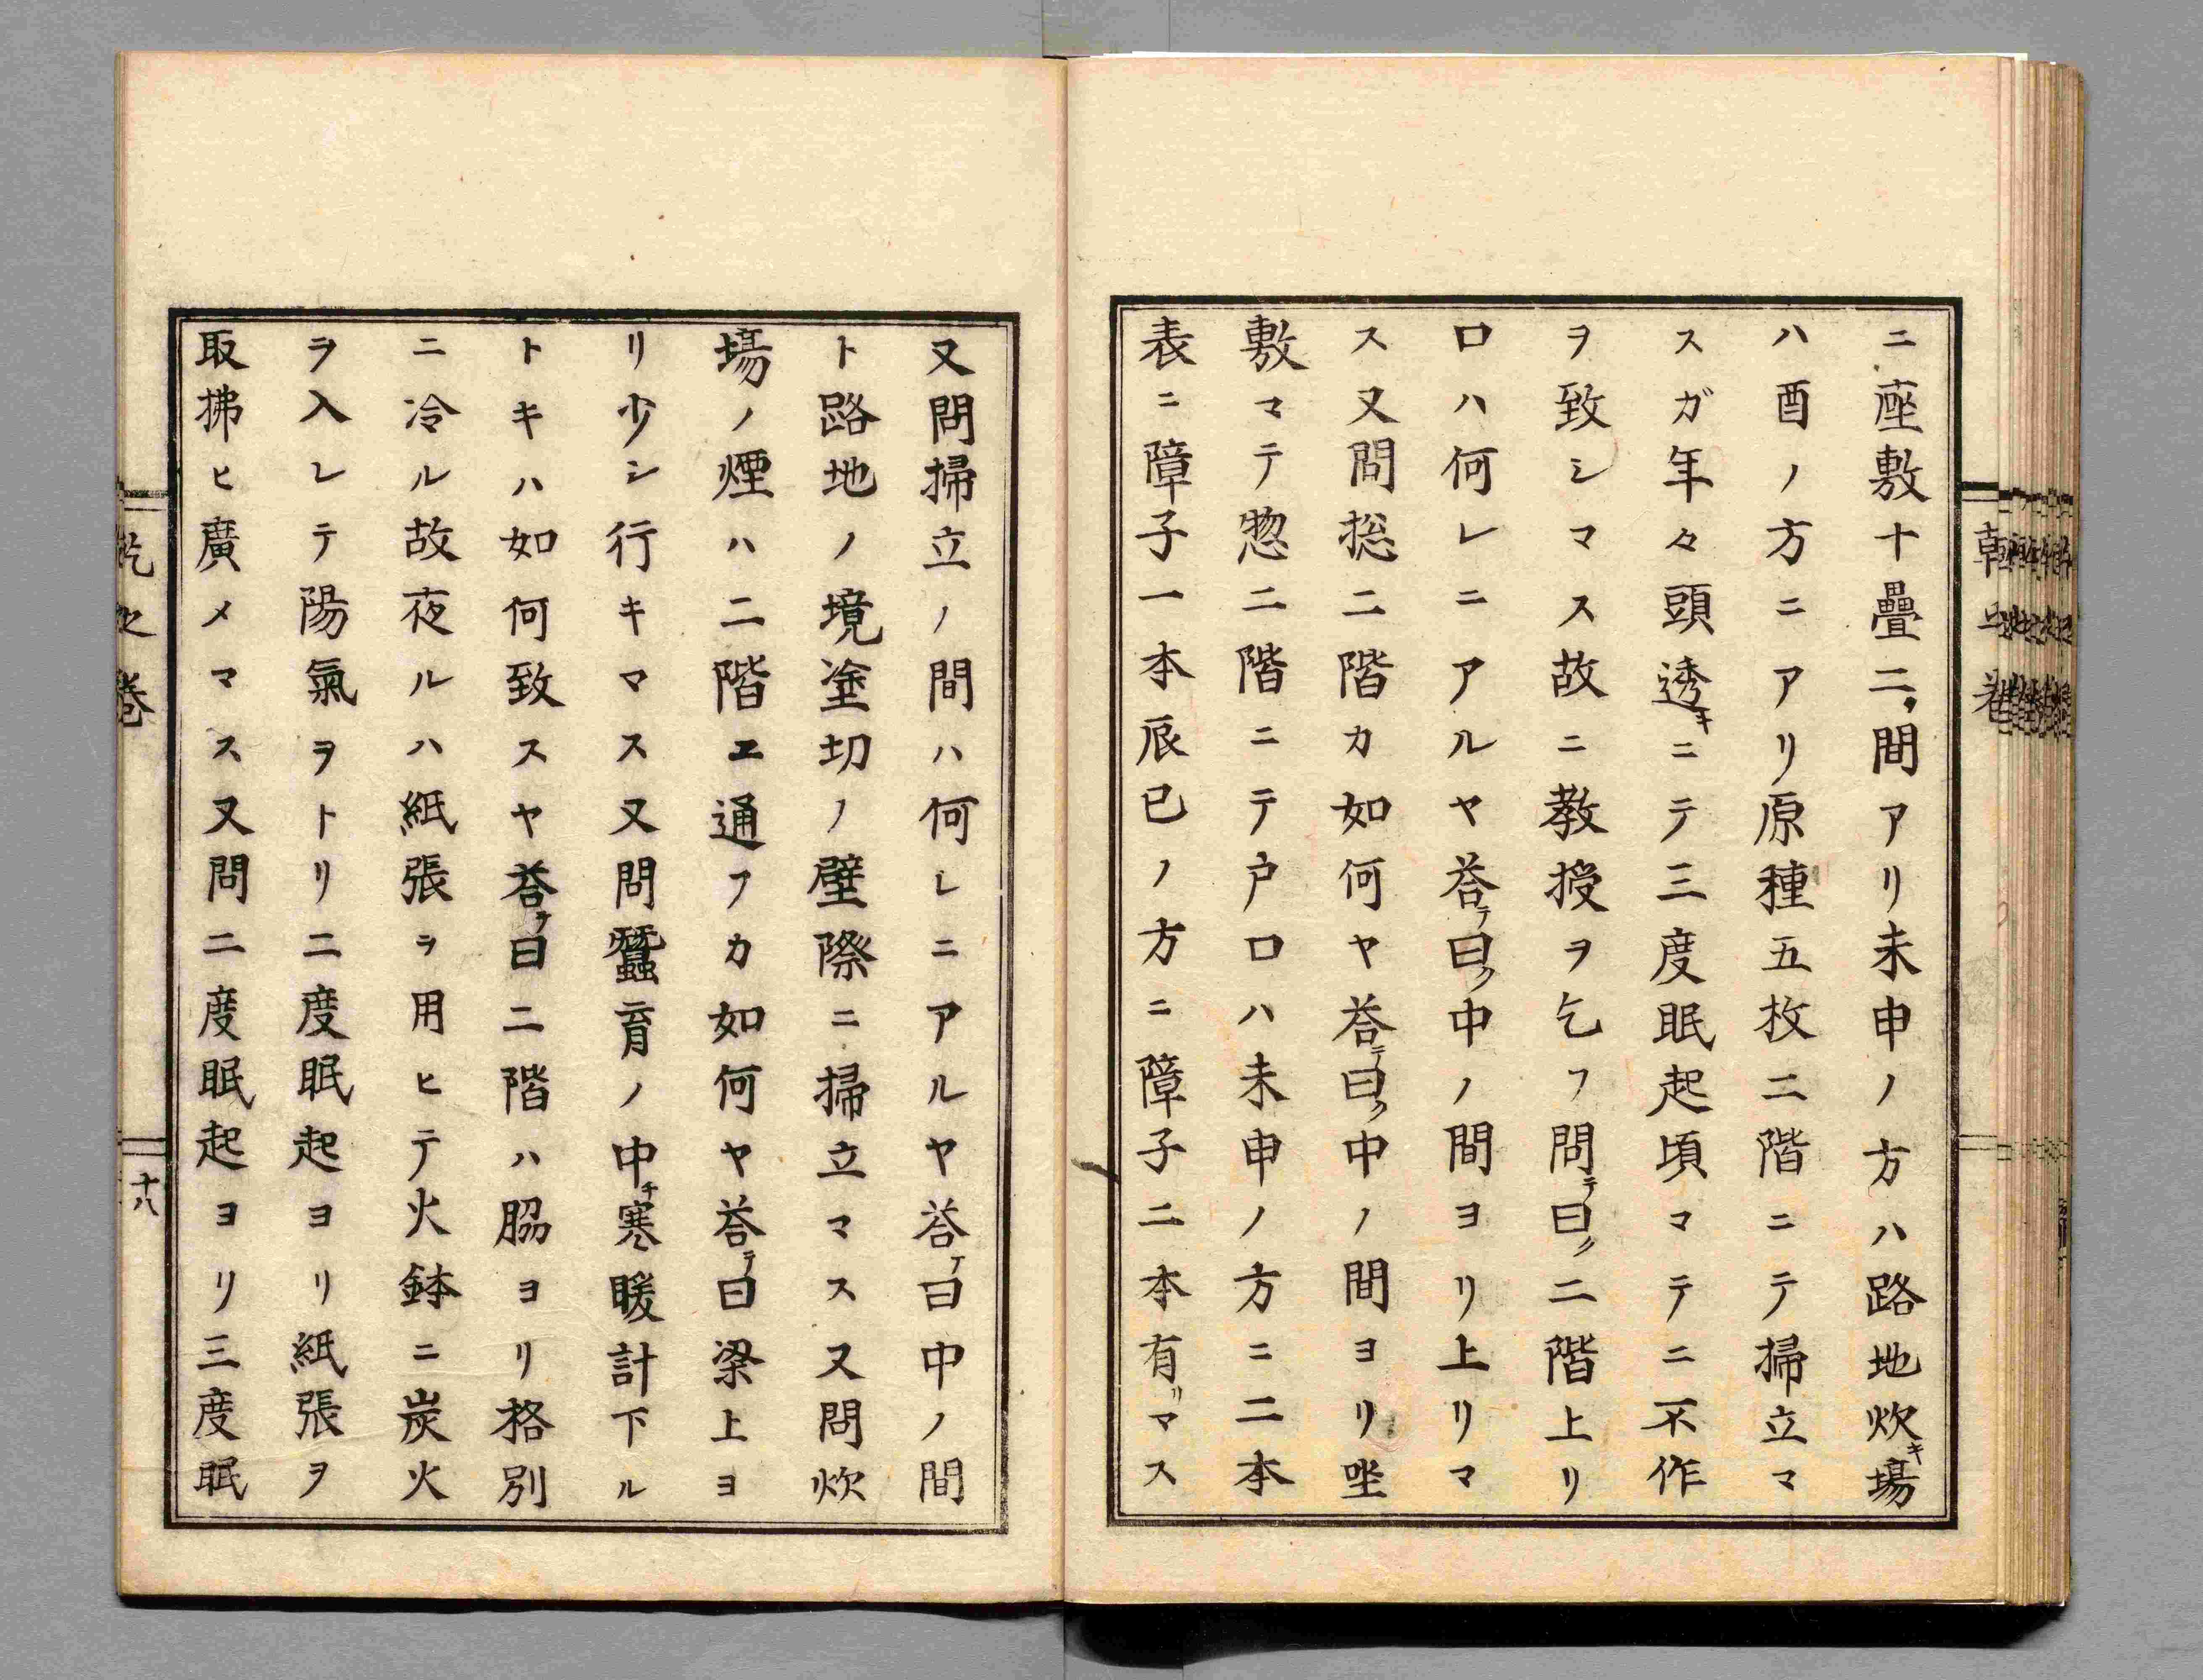 ニ座敷十疊二タ間アリ未申ノ方ハ路地炊キ場
ハ酉ノ方ニアリ原種五枚二階ニテ掃立マ
スガ年々頭透キニテ三度眠起頃マテニ不作
ヲ致シマス故ニ教授ヲ乞フ問テ曰ク二階上リ
口ハ何レニアルヤ荅テ曰ク中ノ間ヨリ上リマ
ス又問捴二階カ如何ヤ荅テ曰ク中ノ間ヨリ坐
敷マテ惣二階ニテ戸口ハ未申ノ方ニ二本
表ニ障子一本辰巳ノ方ニ障子二本有リマス
又問掃立ノ間ハ何レニアルヤ荅テ曰中ノ間
ト路地ノ境塗切ノ壁際ニ掃立マス又問炊
場ノ煙ハ二階エ通フカ如何ヤ荅テ曰梁上ヨ
リ少シ行キマス又問蠶育ノ中チ寒暖計下ル
トキハ如何致スヤ荅テ曰二階ハ脇ヨリ格別
ニ冷ル故夜ルハ紙張ヲ用ヒテ火鉢ニ炭火
ヲ入レテ陽氣ヲトリ二度眠起ヨリ紙張ヲ
取拂ヒ廣メマス又問二度眠起ヨリ三度眠
乾之巻
十八